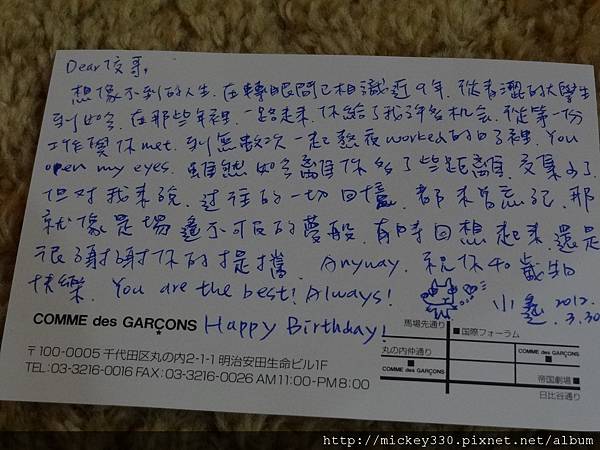 Dear 俊哥,
想像不到的人生. 在轉眼間已相識近9年. 從青澀的大學生
到如今. 在那些年裡. 一路走來. 你給了我許多机会. 從第一份
工作與你met. 到無數次一起熬夜worked的日子裡. You
open my eyes. 雖然如今離你多了些距離. 交集少了.
但對我來說. 過往的一切回憶. 都未曾忘記. 那
就像是場遙不可及的夢般. 有時回想起來. 還是
很謝謝你的提攜. Anyway. 祝你40歲生日
快樂. You are the best! Always! 小 2012.
3.30
Happy Birthday!
COMME des GARÇONS
〒100-0005 千代田区丸の内2-1-1 明治安田生命ビル1F
TEL:03-3216-0016 FAX:03-3216-0026 AM11:00-PM8:00
馬場先通り
国際フォーラム
丸の内仲通り
COMME des GARÇONS
COMME des GARÇONS
帝国劇場
日比谷通り
http://mickey330.pixnet.net/album